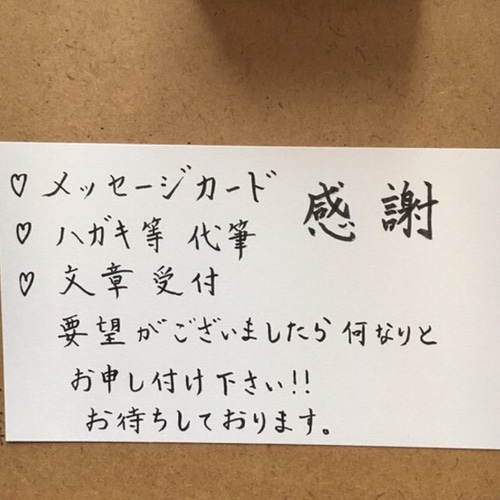 ♡ メッセージカード
感謝
♡ ハガキ等 代筆
♡ 文章 受付
要望がございましたら何なりと
お申し付け下さい!!
お待ちしております。